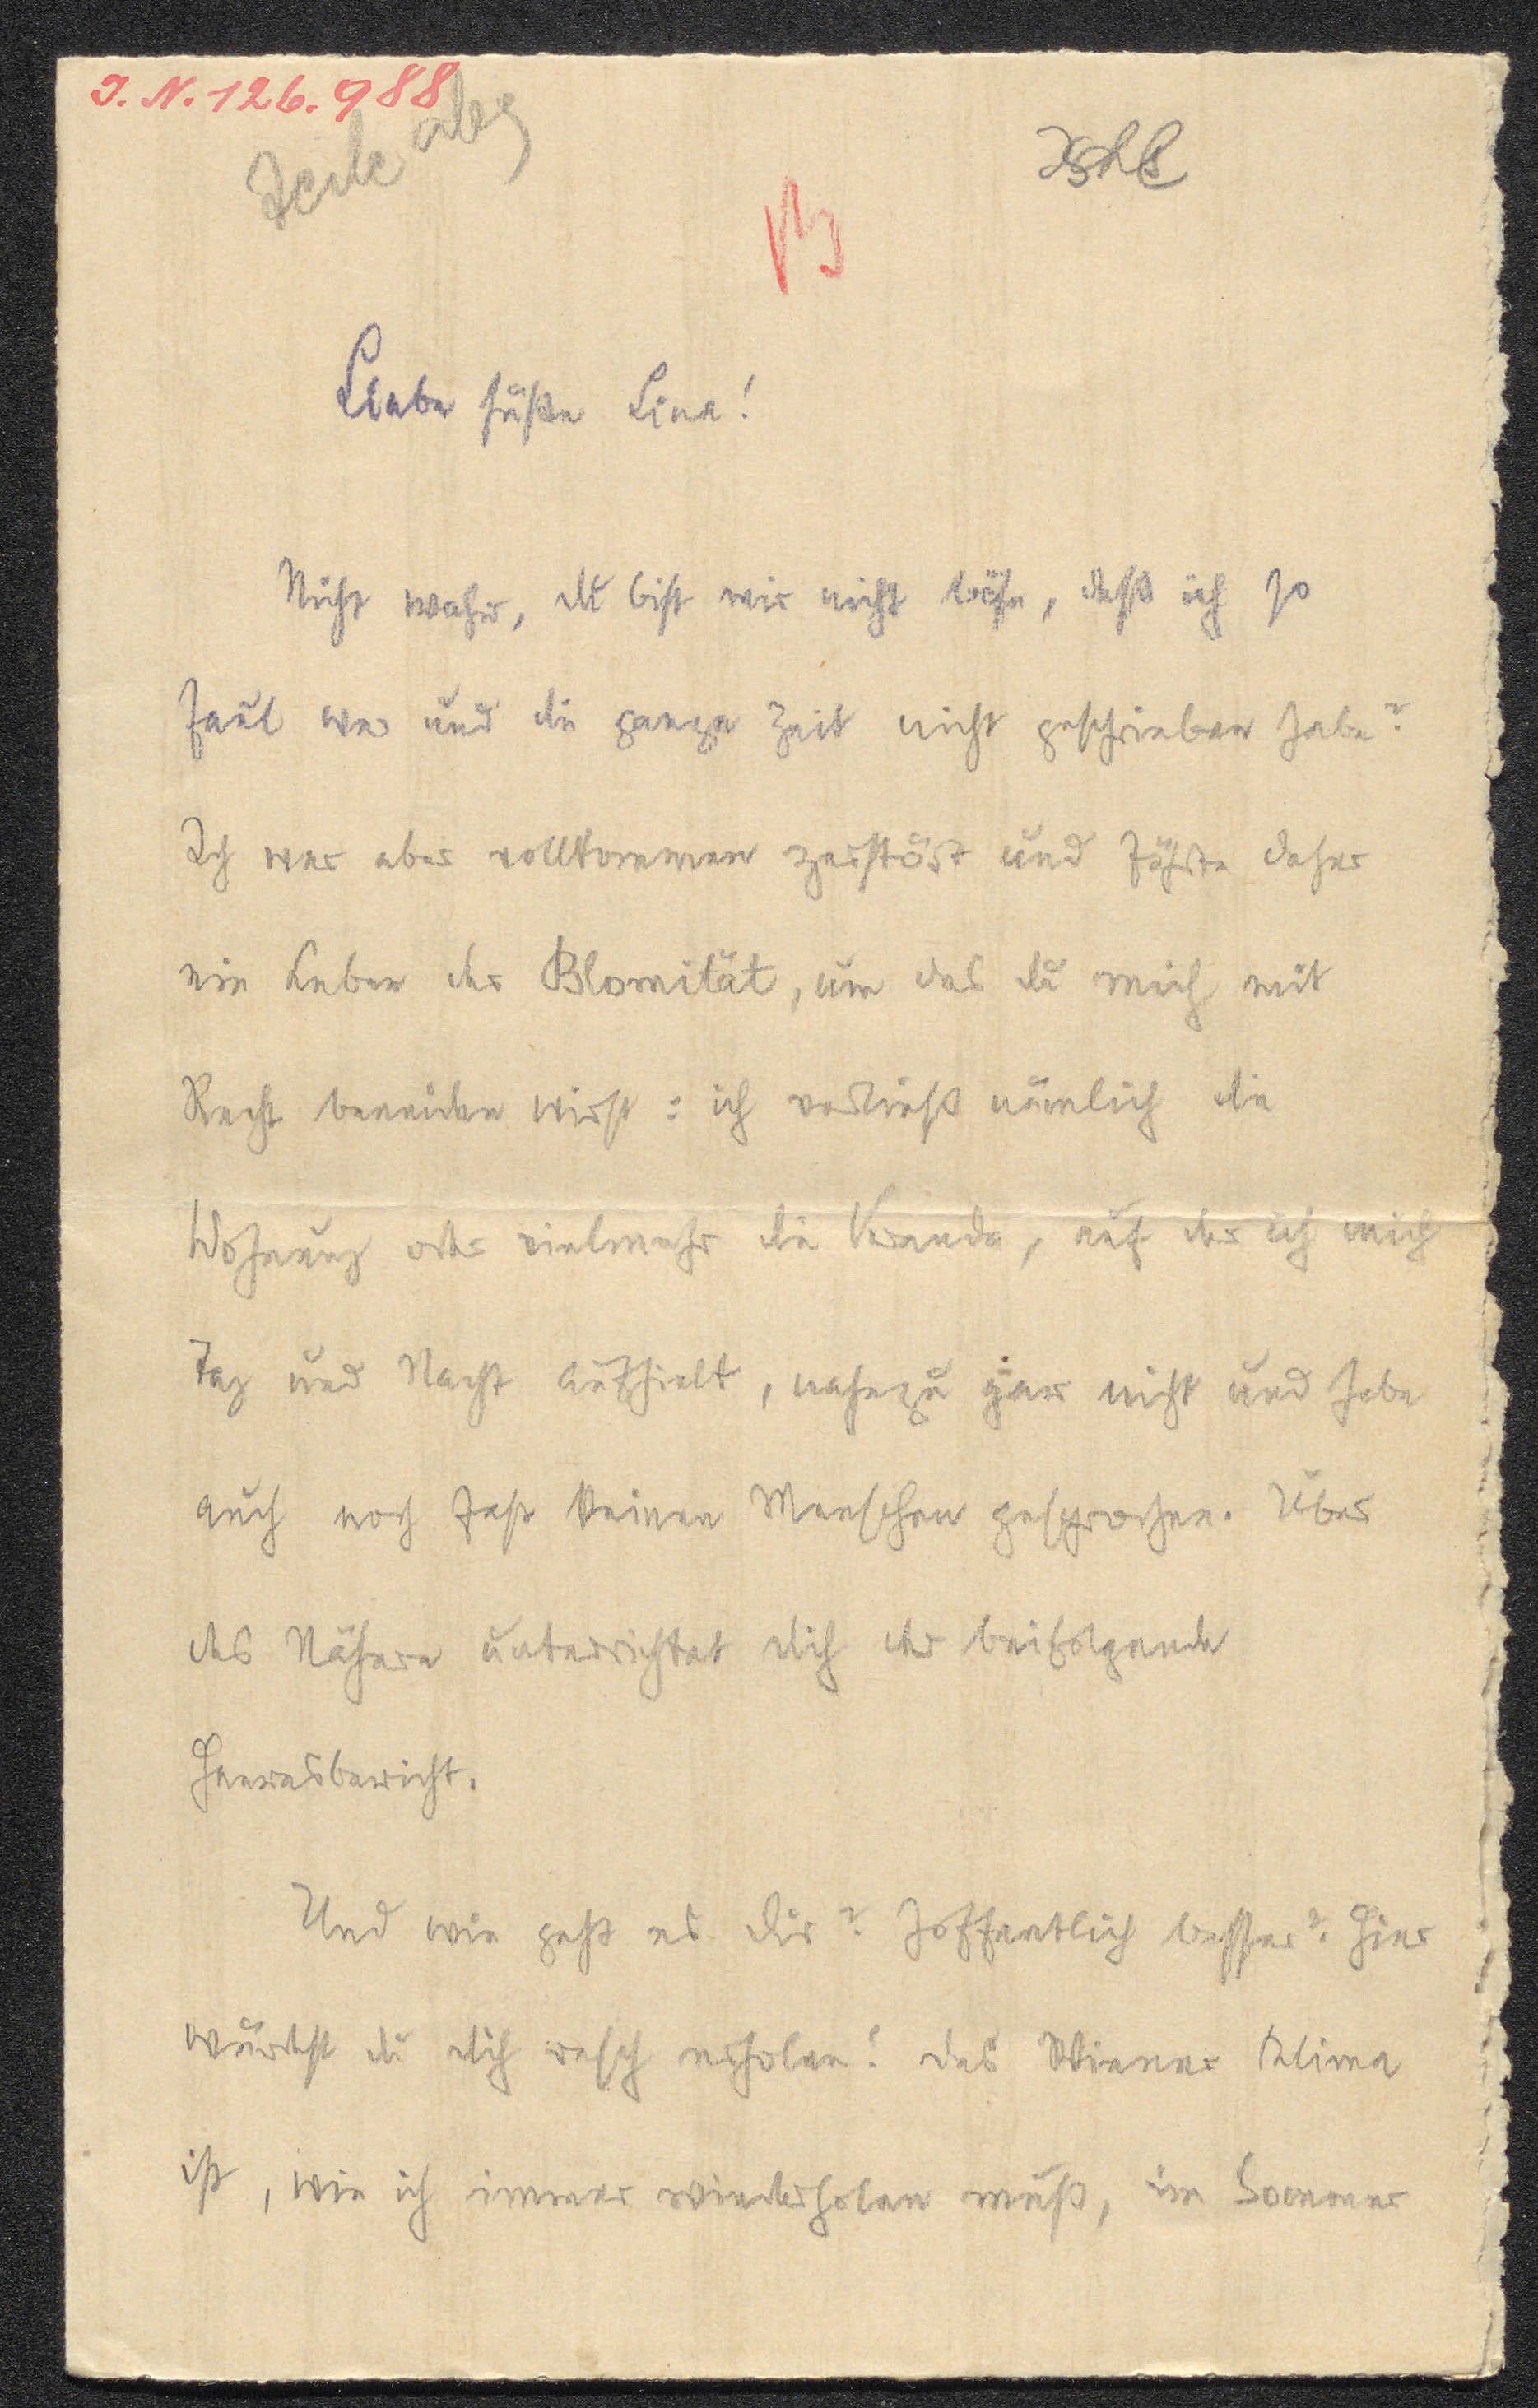 I. N. 126.988
Liebe süße Lina!
Nicht wahr, du bist mir nicht böse, daß ich so
faul war und die ganze Zeit nicht geschrieben habe?
Ich war aber vollkommen zerstört und führte daher
ein Leben der Blomität, um das du mich mit
Recht beneiden wirst: ich verließ nämlich die
Wohnung oder vielmehr die Veranda, auf der ich mich
Tag und Nacht aufhielt, nahezu gar nicht und habe
auch noch fast keinen Menschen gesprochen. Über
das Nähere unterrichtet dich der beifolgende
Heeresbericht.
Und wie geht es dir? Hoffentlich besser? Hier
würdest du dich rasch erholen! Das Wiener Klima
ist, wie ich immer wiederholen muß, im Sommer